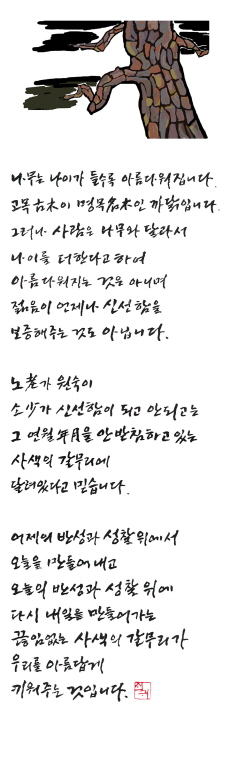 나무는 나이가 들수록 아름다워집니다.
고목古木이 명목名木인 까닭입니다.
그러나 사람은 나무와 달라서
나이를 더한다고 하여
아름다워지는 것은 아니며
젊음이 언제나 신선함을
보증해주는 것도 아닙니다.
노老가 원숙이
소少가 신선함이 되고 안되고는
그 연월年月을 안받침하고 있는
사색의 갈무리에
달려있다고 믿습니다.
어제의 반성과 성찰 위에서
오늘을 만들어내고
오늘의 반성과 성찰 위에
다시 내일을 만들어가는
끊임없는 사색의 갈무리가
우리를 아름답게
키워주는 것입니다.